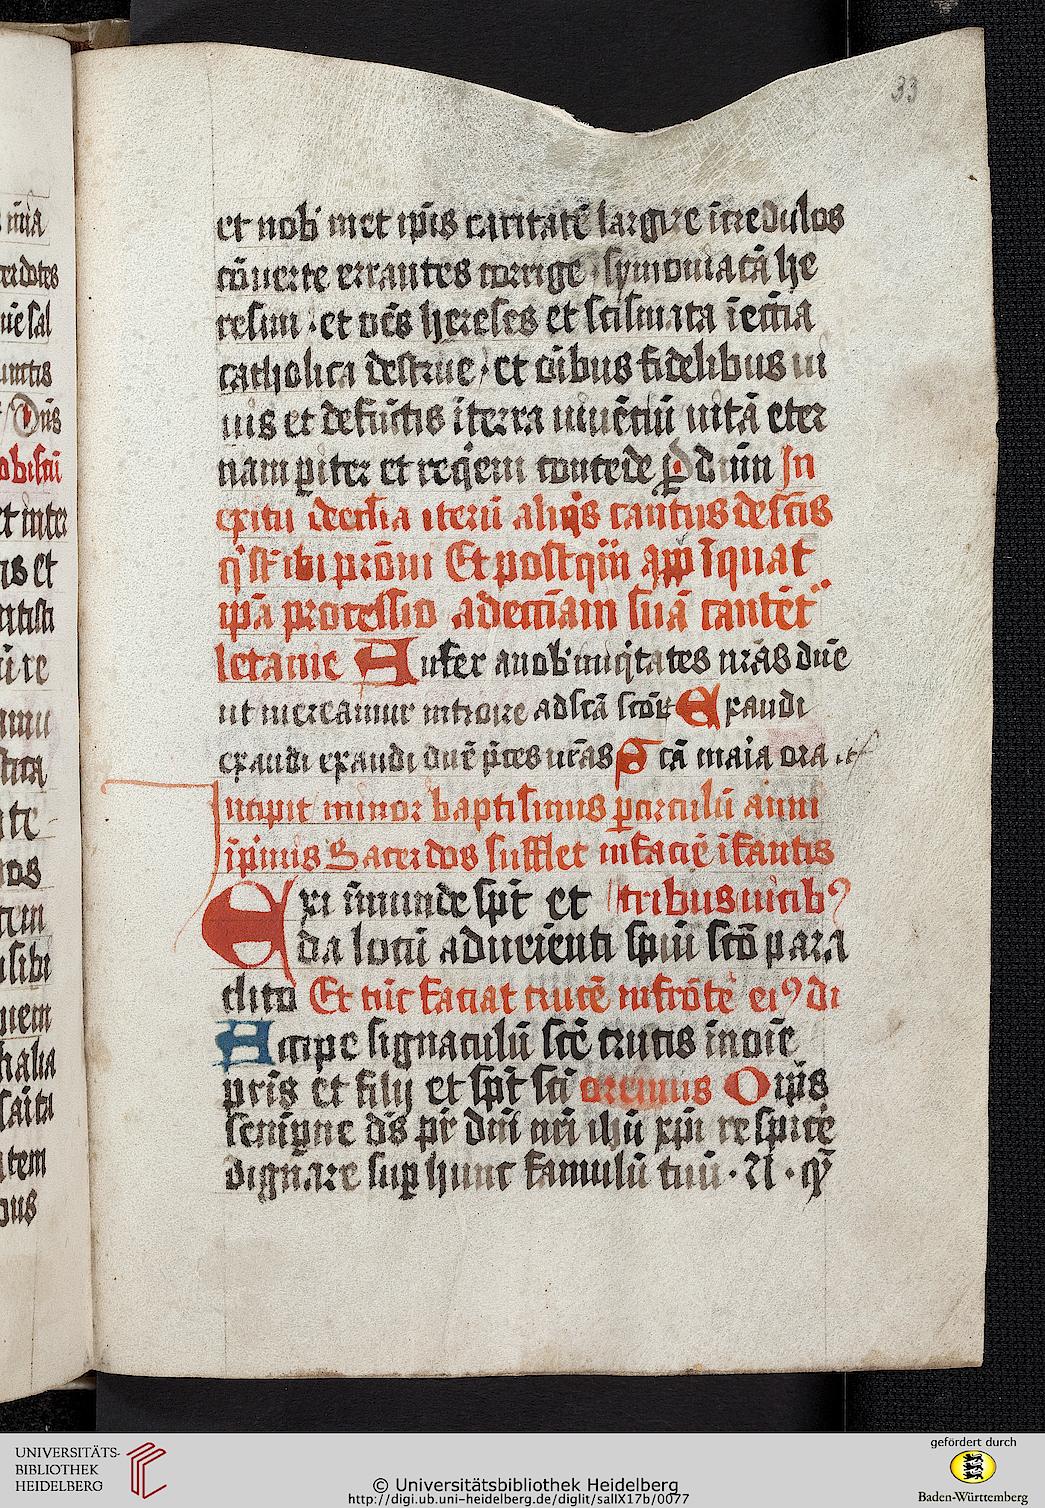 33
et nob̄ met ip̄is caritatē largire īcredulos
cōuerte errantes corrige symoniacā he
resim · et oēs hereses et scismata ī ecc̄ia
catholica destrue / et oībus fidelibus ui
uis et defūctis ī terra uiuēciū uitā eter
nam pariter et req̄em concede p̄ d̄nm̄ In
exitu de eccl̄ia iterū aliq̄s cantus de sc̄is
ip̄a processio ad ecc̄iam suā cantēt
letanie Aufer a nob̄ iniq̄tates nr̄as dn̄e
ut mereamur introire ad sc̄ā sc̄ōꝝ Exaudi
exaudi exaudi dn̄e p̄ces nr̄as Sc̄ā maīa ora
Incipit minor baptismus paruulū anni
īp̄mis Sacerdos sufflet in faciē īfantis
Exi īmunde sp̄c̄ et tribus uicibꝰ
da locū aduenienti sp̄iu sc̄o para
clito Et tūc faciat crucē in frōte eiꝰ di
Accipe signaculū sc̄ē crucis ī noīe
pr̄is et filij et sp̄c̄ sc̄i oremus Omps̄
semp̄ne ds̄ pr̄ dn̄i nr̄i ihū xp̄i respice
dignare sup hunc famulū tuū · N · qȝ
UNIVERSITÄTS-
BIBLIOTHEK
HEIDELBERG
© Universitätsbibliothek Heidelberg
http://digi.ub.uni-heidelberg.de/diglit/salIX17b/0077
gefördert durch
Baden-Württemberg